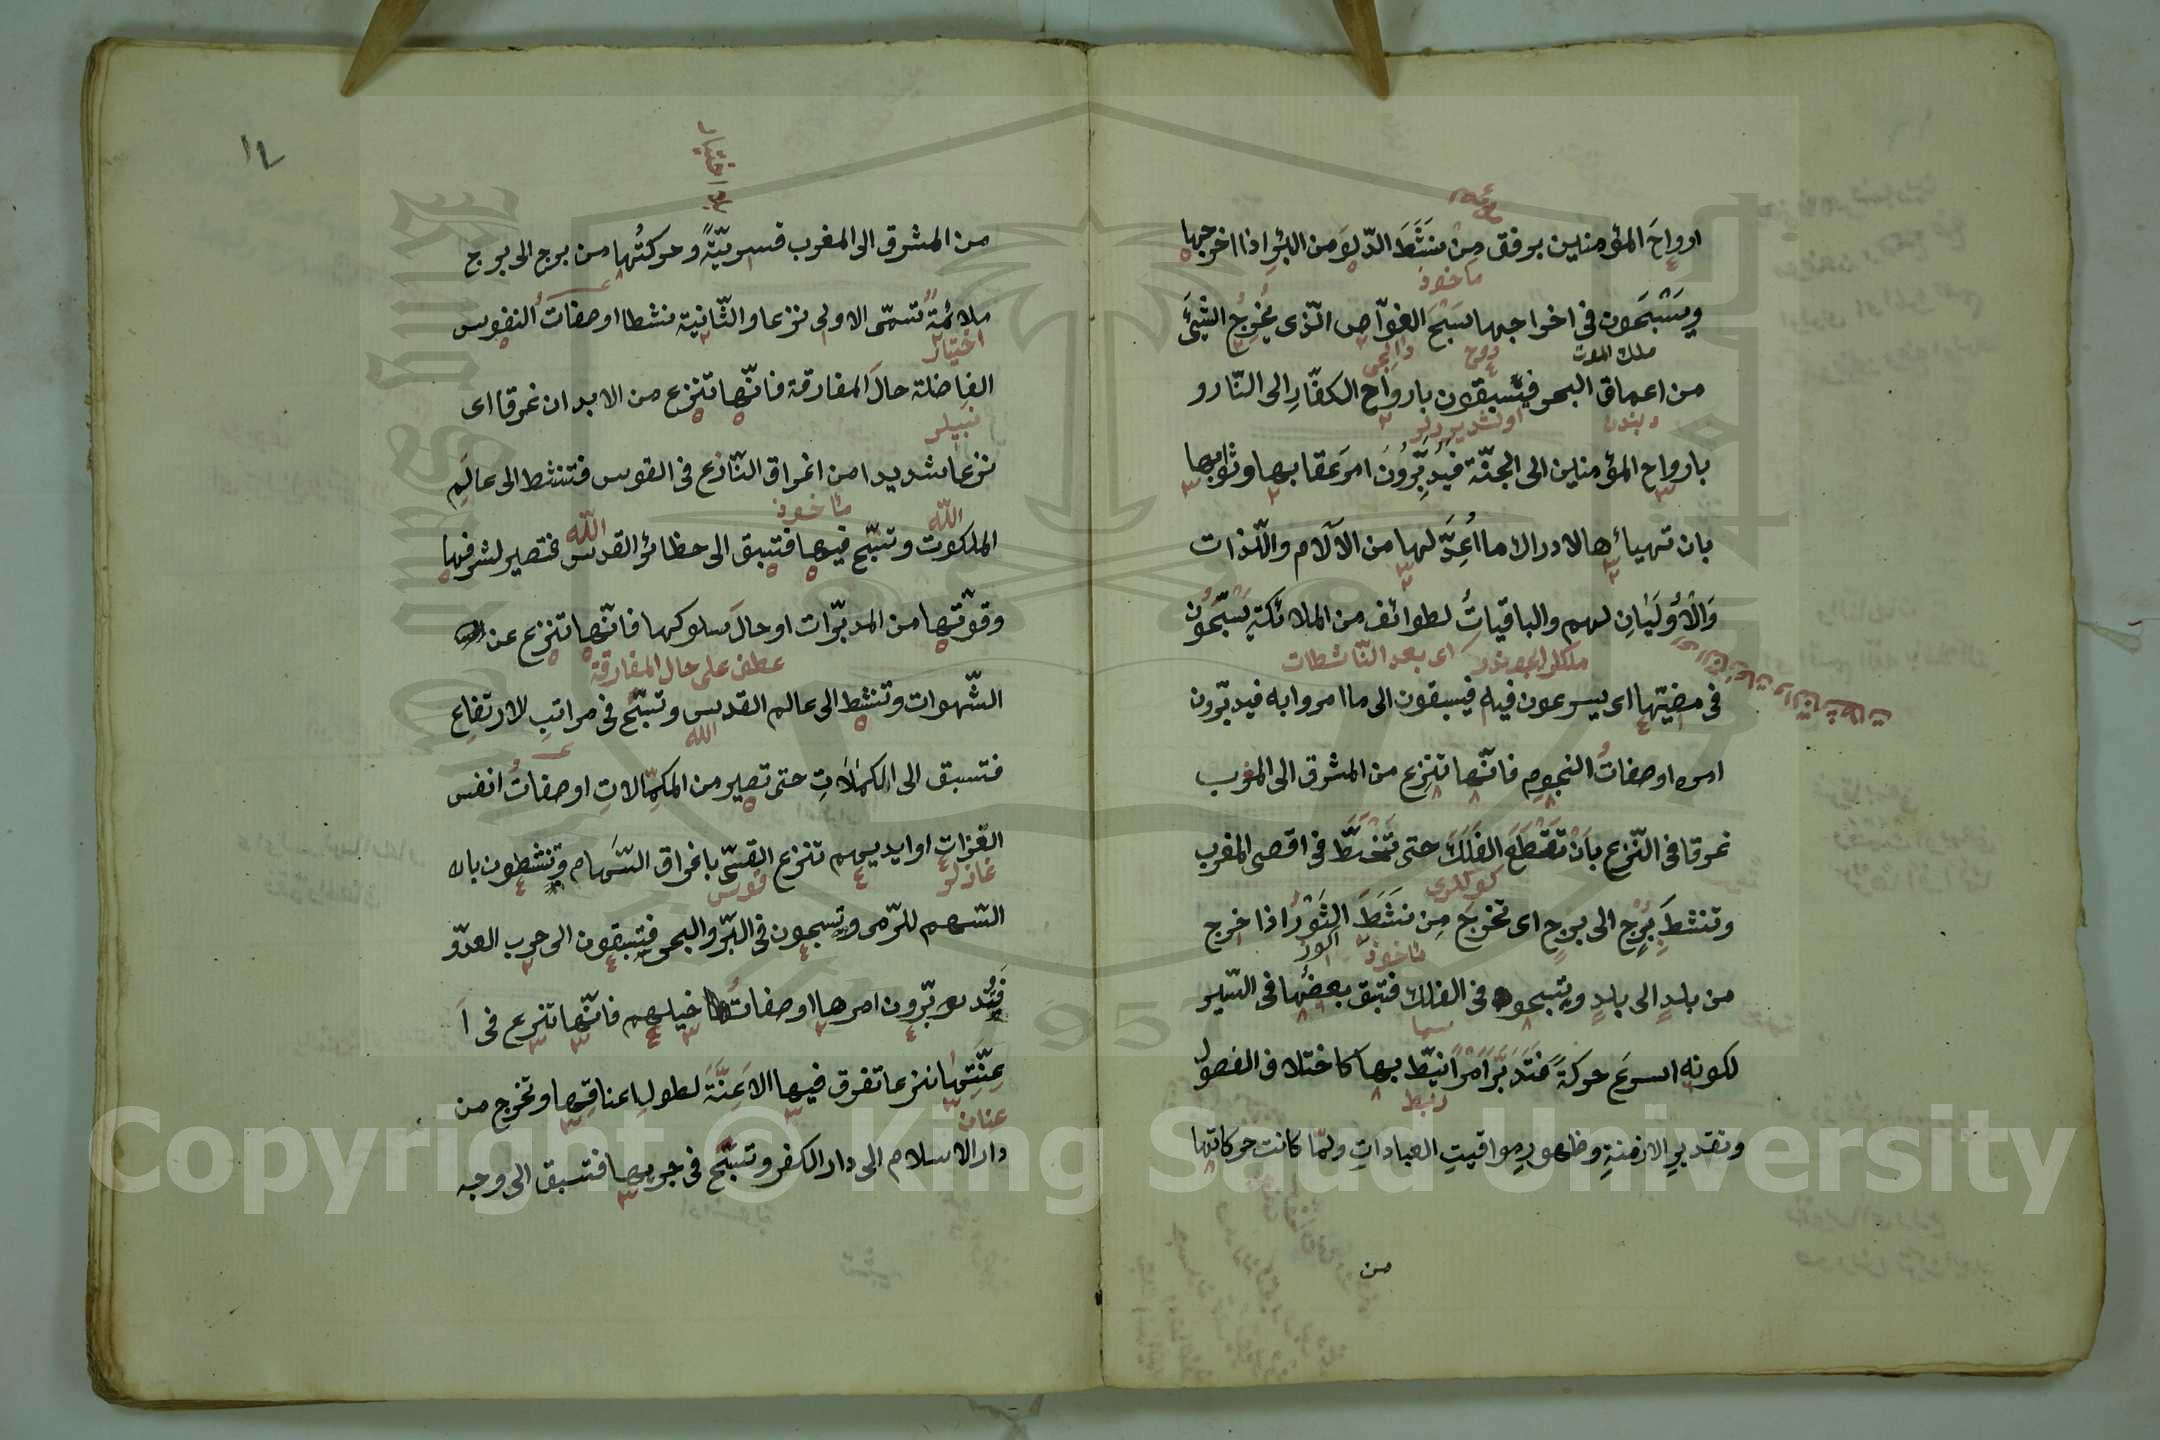 ارواحَ المؤمنين برفق مِن نَشَطَ الدّلوَ من البئرِ اذا اخرجها
مأخوذ
ويَسْبَحَون فى اخراجها سَبْحَ الغوّاص الّذى يُخْرِجُ الشَّئَ
ملك الموت
من اعماق البحر فيسبقون بارواح الكفّارِ الى النّار و
بارواح المؤمنين الى الجنّة فيُدَبِّرُونَ امرَ عقابها وثوابها
بان تهيائها لادراك ما اُعِدَّ لها من الآلام واللّذات
وَالْاُوْلَيَانِ لهم والباقياتُ لطوائف من الملائكةِ يَسْبَحُون
اى بعد النّاشطات
فى مضيّها اى يسرعون فيه فيسبقون الى ما امروا به فيدبّرون
امره اوصفاتُ النجومِ فانّها تنزع من المشرق الى المغرب
غرقا فى النّزع بانْ تَقْطَعَ الفَلَكَ حتى تَنْحَطَّ فى اقصى المغرب
وتنشطَ بُرْجٍ الى برجٍ اى تخرجَ مِن نَشَطَ الثَوْرُ اذا اخرج
مأخوذ
من بلدٍ الى بلدٍ ويسبحون فى الفلك فتبق بعضُها فى السّير
سما
لكونه اسرعَ حركةً فَتَدَبَّرَ اَمْرًا نيّط بها كاختلاف الفصول
وتقديرِ الازمنةِ وظهور مواقيتِ العباداتِ ولمّا كانت حركاتها
من
١٢
من المشرق الى المغرب قسريّةً وحركتُها من برج الى برج
ملائمةً تسمّى الاولى نزعا والثّانية نشطا اوصفاتُ النفوس
اختيار
الفاضلة حالَ المفارقة فانّها تنزع من الابدان غرقا اى
نزعا شديدا من اغراق النّازع فى القوس فتنشط الى عالَمِ
مأخوذ
الله
الله
الملكوت وتسبّح فيها فتبق الى حظائر القدس فتصير لشرفها
وقوّتها من المدبّرات او حالَ سلوكها فانّها تنزع عن
عطف على حال المفارقة
الشّهوات وتنشط الى عالم القدس وتسبّح فى مراتبِ الارتقاعِ
الله
فتسبق الى الكمالاتِ حتى تصير من المكمّلاتِ اوصفاتُ انفس
الغزات او ايديهم تنزع القسىّ باغراق السّهام وتنشطون بال
قوس
غازلر
السّهم للرّمى ويسبحون فى البّر والبحر فتسبقون الى حرب العدّو
فيدبّرون امرها اوصفاتُ خيلهم فانّها تنزع فى ا
عِنّتها نزعا تفرق فيها الاعِنَّةَ لطولِ اعناقِها وتخرج من
عنان
دار الاسلام الى دار الكفر وتسبّح فى جريها فتسبق الى وجه
Copyright © King Saud University
King Saud
957